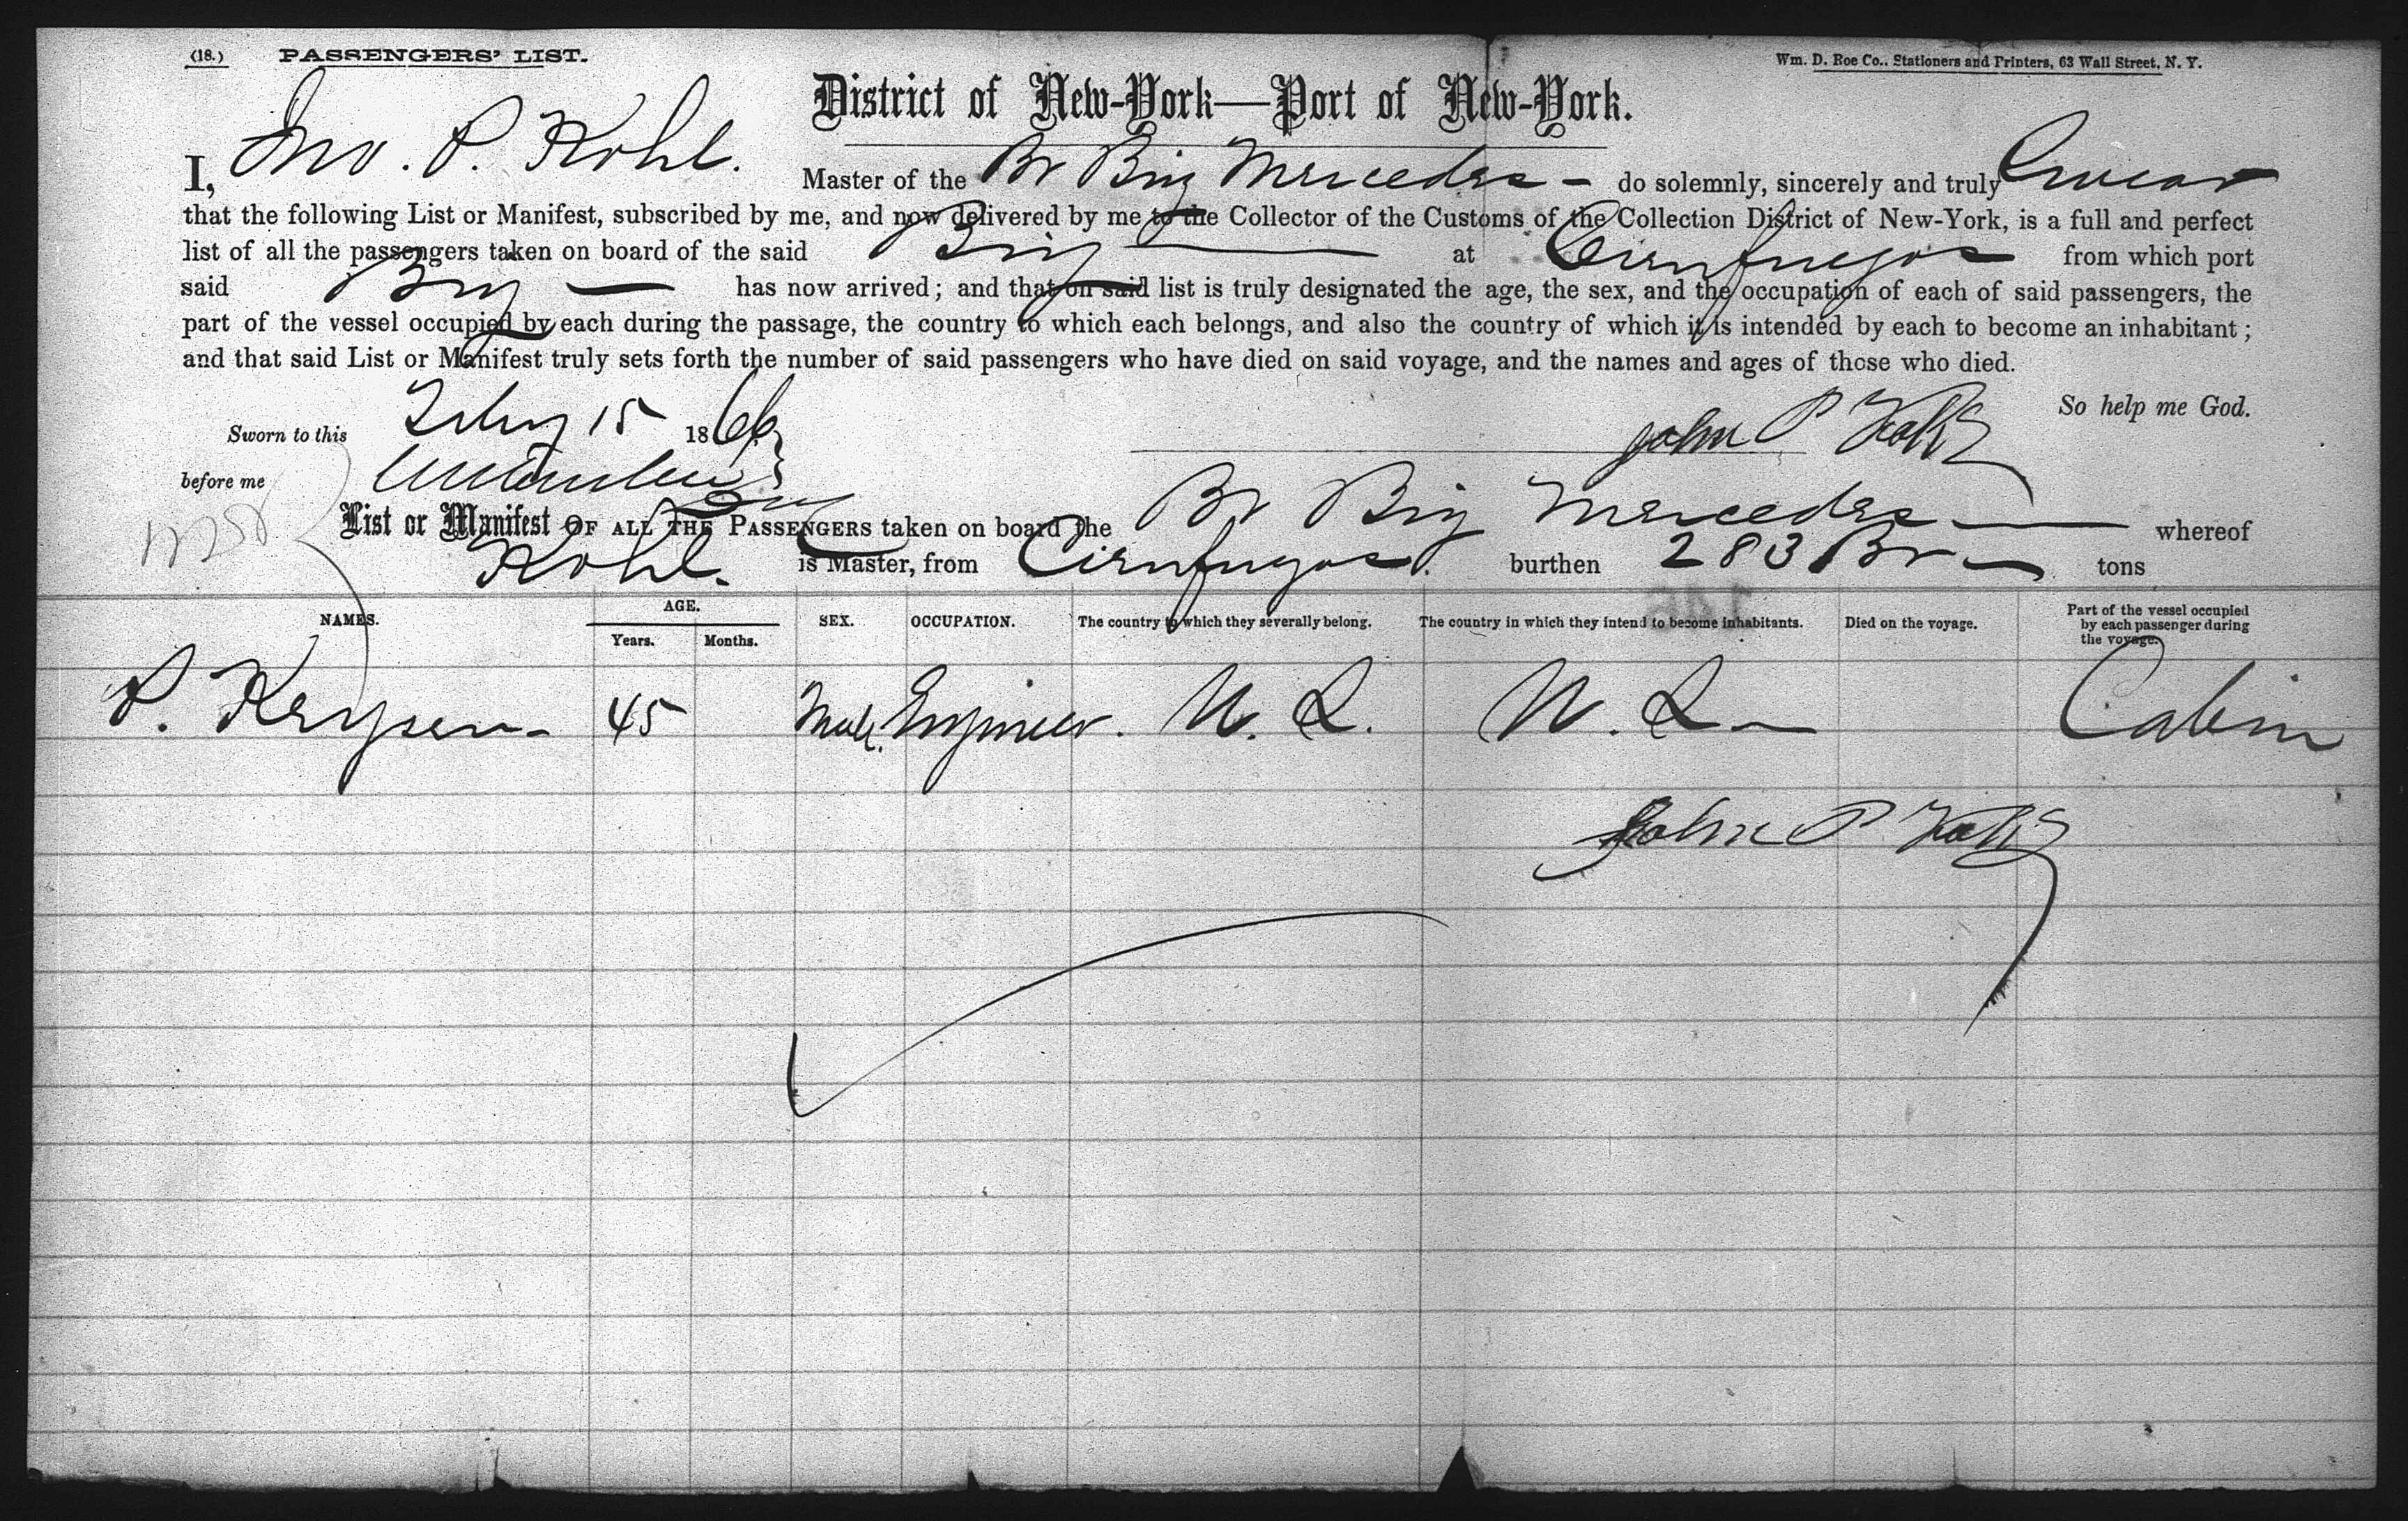 (18.) PASSENGERS' LIST. Wm. D. Roe Co., Stationers and Printers, 63 Wall Street, N. Y.
District of New-York—Port of New-York.
I, Jno. P. Kohl. Master of the Br Brig Mercedes - do solemnly, sincerely and truly swear
that the following List or Manifest, subscribed by me, and now delivered by me to the Collector of the Customs of the Collection District of New-York, is a full and perfect
list of all the passengers taken on board of the said Brig at Cienfuegos from which port
said Brig has now arrived; and that on said list is truly designated the age, the sex, and the occupation of each of said passengers, the
part of the vessel occupied by each during the passage, the country to which each belongs, and also the country of which it is intended by each to become an inhabitant;
and that said List or Manifest truly sets forth the number of said passengers who have died on said voyage, and the names and ages of those who died.
So help me God.
Sworn to this Feby 15 1866 John P
before me
List or Manifest OF ALL THE PASSENGERS taken on board the Br Brig Mercedes whereof
Kohl. is Master, from Cienfuegos. burthen 283 Br tons
NAMES. AGE. Years. Months. SEX. OCCUPATION. The country to which they severally belong. The country in which they intend to become inhabitants. Died on the voyage. Part of the vessel occupied by each passenger during the voyage.
P. Keyser 45 Male. Engineer. U. S. U. S. Cabin
John P